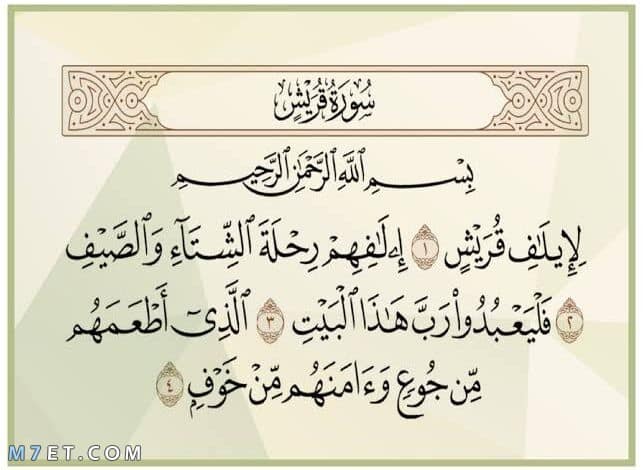 سُورَةُ قُرَيْشٍ
بِسْمِ اللَّهِ الرَّحْمَٰنِ الرَّحِيمِ
لِإِيلَافِ قُرَيْشٍ ١ إِۦلَافِهِمْ رِحْلَةَ الشِّتَآءِ وَالصَّيْفِ
٢ فَلْيَعْبُدُوا۟ رَبَّ هَٰذَا الْبَيْتِ ٣ الَّذِىٓ أَطْعَمَهُم
مِّن جُوعٍ وَءَامَنَهُم مِّنْ خَوْفٍ ٤
M7ET.COM